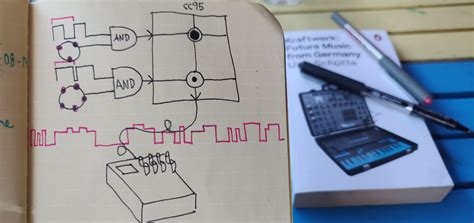 CC95
AND
AND
Kraftwerk:
Future Music
from Germany
Schütte